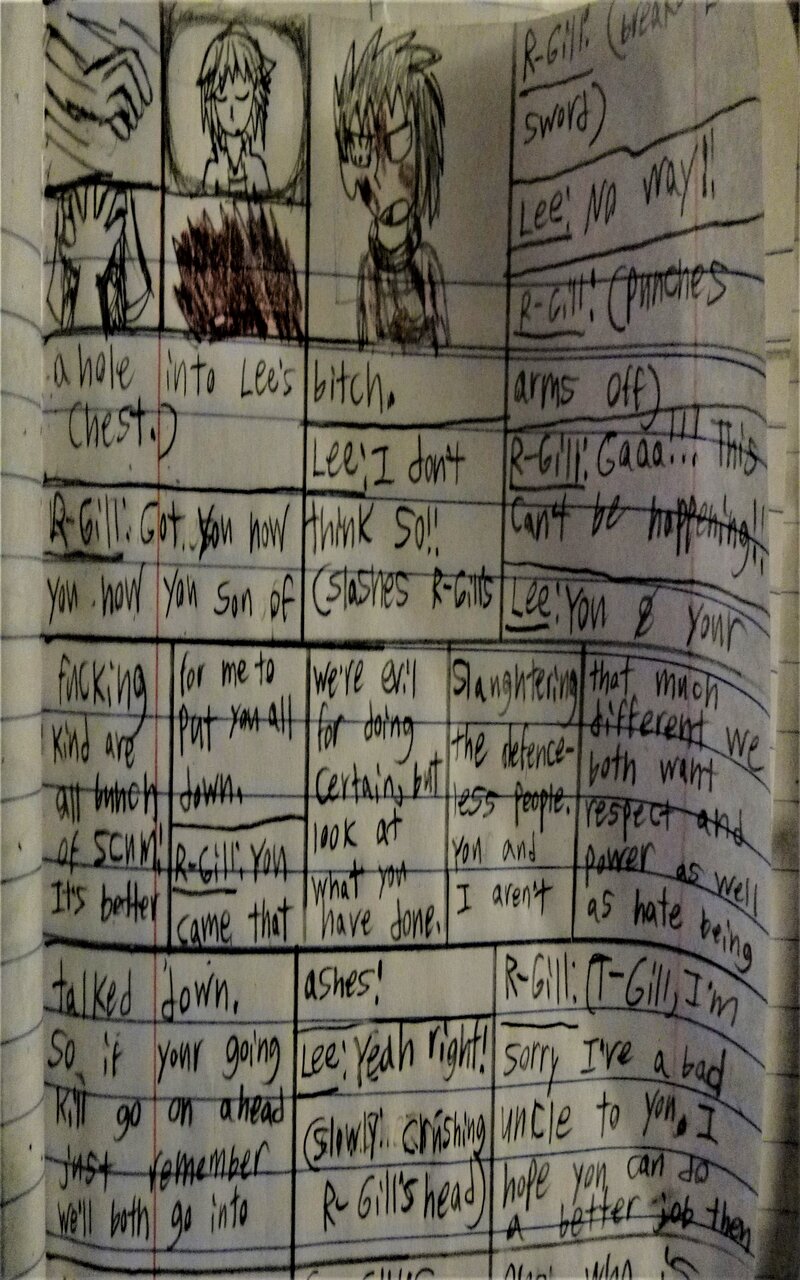 R-Gill: (breaks
sword)
Lee: No way!!
R-Gill: (punches
a hole into Lee's
Chest.)
R-Gill: Got you now
you now you son of
bitch.
Lee: I don't
think so!!
(slashes R-Gill's
arms off)
R-Gill: Gaaa!!! This
can't be happening!!
Lee: You & your
fucking
kind are
all bunch
of scum!
It's better
for me to
put you all
down.
R-Gill: You
came that
we're evil
for doing
certain, but
look at
what you
have done.
Slaughtering
the defence-
less people.
You and
I aren't
that much
different we
both want
respect and
power as well
as hate being
talked down.
So if your going
kill go on ahead
just remember
we'll both go into
ashes!
Lee: Yeah right!
(slowly crushing
R-Gill's head)
R-Gill: (T-Gill, I'm
sorry I've a bad
uncle to you. I
hope you can do
a better job then